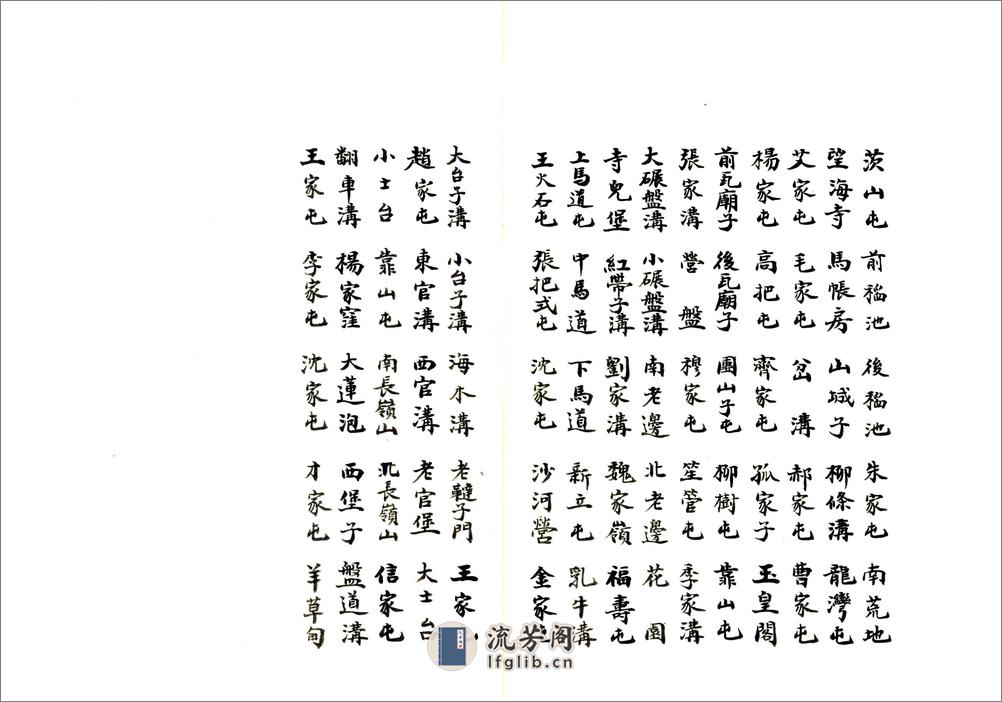 茨山屯 前稻池 後稻池 朱家屯 南荒地
望海寺 馬帳房 山城子 柳條溝 龍灣屯
艾家屯 毛家屯 岔溝 郝家屯 曹家屯
楊家屯 高把屯 齊家屯 孤家子 玉皇閣
前瓦廟子 後瓦廟子 團山子屯 柳樹屯 靠山屯
張家溝 營盤 穆家屯 笙管屯 季家溝
大碾盤溝 小碾盤溝 南老邊 北老邊 花園
寺兒堡 紅帶子溝 劉家溝 魏家嶺 福壽屯
上馬道屯 中馬道 下馬道 新立屯 乳牛溝
王火石屯 張把式屯 沈家屯 沙河營 金家
大台子溝 小台子溝 海木溝 老韃子門 王家
趙家屯 東官溝 西官溝 老官堡 大士台
小士台 靠山屯 南長嶺山 北長嶺山 信家屯
翻車溝 楊家窪 大蓮泡 西堡子 盤道溝
王家屯 李家屯 沈家屯 才家屯 羊草甸
流芳阁
lfglib.cn